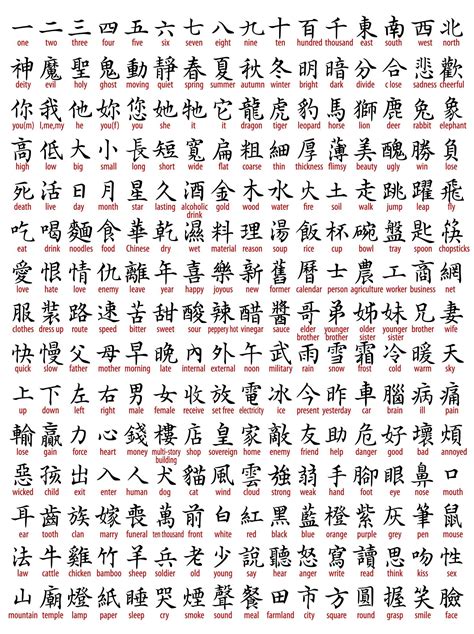 一 二 三 四 五 六 七 八 九 十 百 千 東 南 西 北
one two three four five six seven eight nine ten hundred thousand east south west north
神 魔 聖 鬼 動 靜 春 夏 秋 冬 明 暗 分 合 悲 歡
deity evil holy ghost moving quiet spring summer autumn winter bright dark divide close sadness cheerful
你 我 他 妳 您 她 牠 它 龍 虎 豹 馬 獅 鹿 兔 象
you(m) I,me,my he you(f) you she it it dragon tiger leopard horse lion deer rabbit elephant
高 低 大 小 長 短 寬 扁 粗 細 厚 薄 美 醜 勝 負
high low big small long short wide flat coarse thin thickness flimsy beauty ugly win lose
死 活 日 月 星 久 酒 金 木 水 火 土 走 跳 躍 飛
death live day month star lasting alcoholic drink gold wood water fire soil walk jump leap fly
吃 喝 麵 食 華 乾 濕 料 理 湯 飯 杯 碗 盤 匙 筷
eat drink noodles food Chinese dry wet material reason soup rice cup bowl tray spoon chopsticks
愛 恨 情 仇 離 年 喜 樂 新 舊 曆 士 農 工 商 網
love hate love enemy leave year happy joyous new former calendar person agriculture worker business net
服 裝 路 速 苦 甜 酸 辣 醋 醬 哥 弟 姊 妹 兄 妻
clothes dress up route speed bitter sweet sour peppery hot vinegar sauce elder brother younger brother older sister younger sister brother wife
快 慢 父 母 早 晚 內 外 午 軍 雨 雪 霜 冷 暖 天
quick slow father mother morning late internal external noon military rain snow frost cold warm sky
上 下 左 右 男 女 收 放 電 冰 今 昨 車 腦 病 痛
up down left right male female receive set free electricity ice present yesterday car brain ill pain
輸 贏 力 心 錢 樓 店 皇 家 敵 友 助 危 好 壞 煩
lose gain force heart money multi-story building shop sovereign home enemy friend help danger good bad annoyed
惡 孩 出 入 人 犬 貓 風 雲 強 弱 手 腳 眼 鼻 口
wicked child exit enter human dog cat wind cloud strong weak hand foot eye nose mouth
耳 齒 族 嫁 喪 萬 前 白 紅 黑 藍 橙 紫 灰 筆 鼠
ear tooth clan marry funeral ten thousand front white red black blue orange purple grey pen mouse
法 牛 雞 竹 羊 兵 老 少 說 聽 怒 寫 讀 思 吻 性
law cattle chicken bamboo sheep soldier old young say hear anger write read think kiss sex
山 廟 燈 紙 睡 哭 煙 聲 餐 田 市 方 圓 握 笑 臉
mountain temple lamp paper sleep cry smoke sound meal farmland city square round grasp smile face